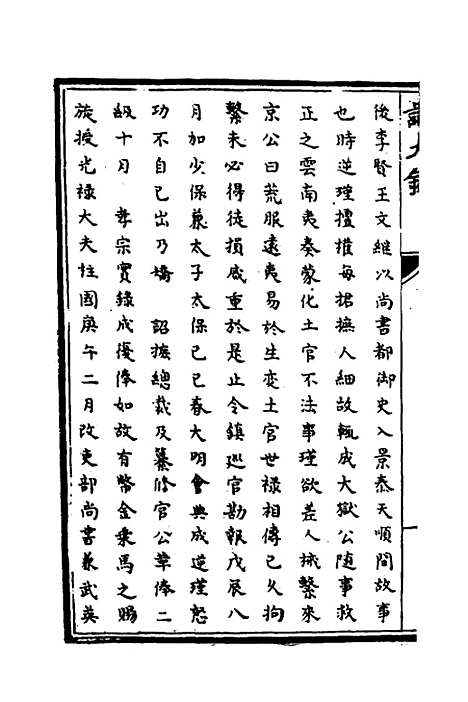 後李賢王文繼以尚書都御史入景泰天順間故事
也時逆瑾擅權每捃摭人細故輒成大獄公隨事救
正之雲南夷奏蒙化土官不法事瑾欲差人械繫來
京公曰荒服遠夷易於生变土官世祿相傳已久拘
繫未必得徒損威重於是止令鎮巡官勘報戊辰八
月加少保兼太子太保己巳春大明會典成逆瑾怒
功不自己出乃矯　詔摭總裁及纂修官公革俸二
級十月　孝宗實錄成復俸如故有幣金乘馬之賜
旋授光祿大夫柱國庚午二月改吏部尚書兼武英